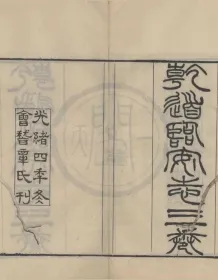 乾道臨安志三卷
光緒四年冬
會稽章氏刊